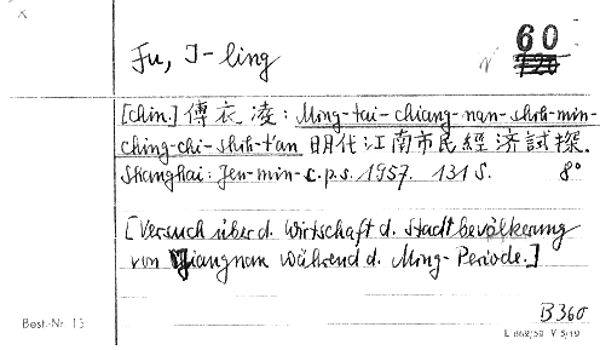 60
Fu, I-ling
[chin.] 傅衣凌: Ming-tai-chiang-nan-shih-min-
ching-chi-shih-t'an 明代江南市民經濟試探.
Shanghai: Jen-min-c.p.s. 1957. 131 S. 8°
[Versuch über d. Wirtschaft d. Stadtbevölkerung
von Kiangnan während d. Ming-Periode.]
B 360
Best.-Nr. 13